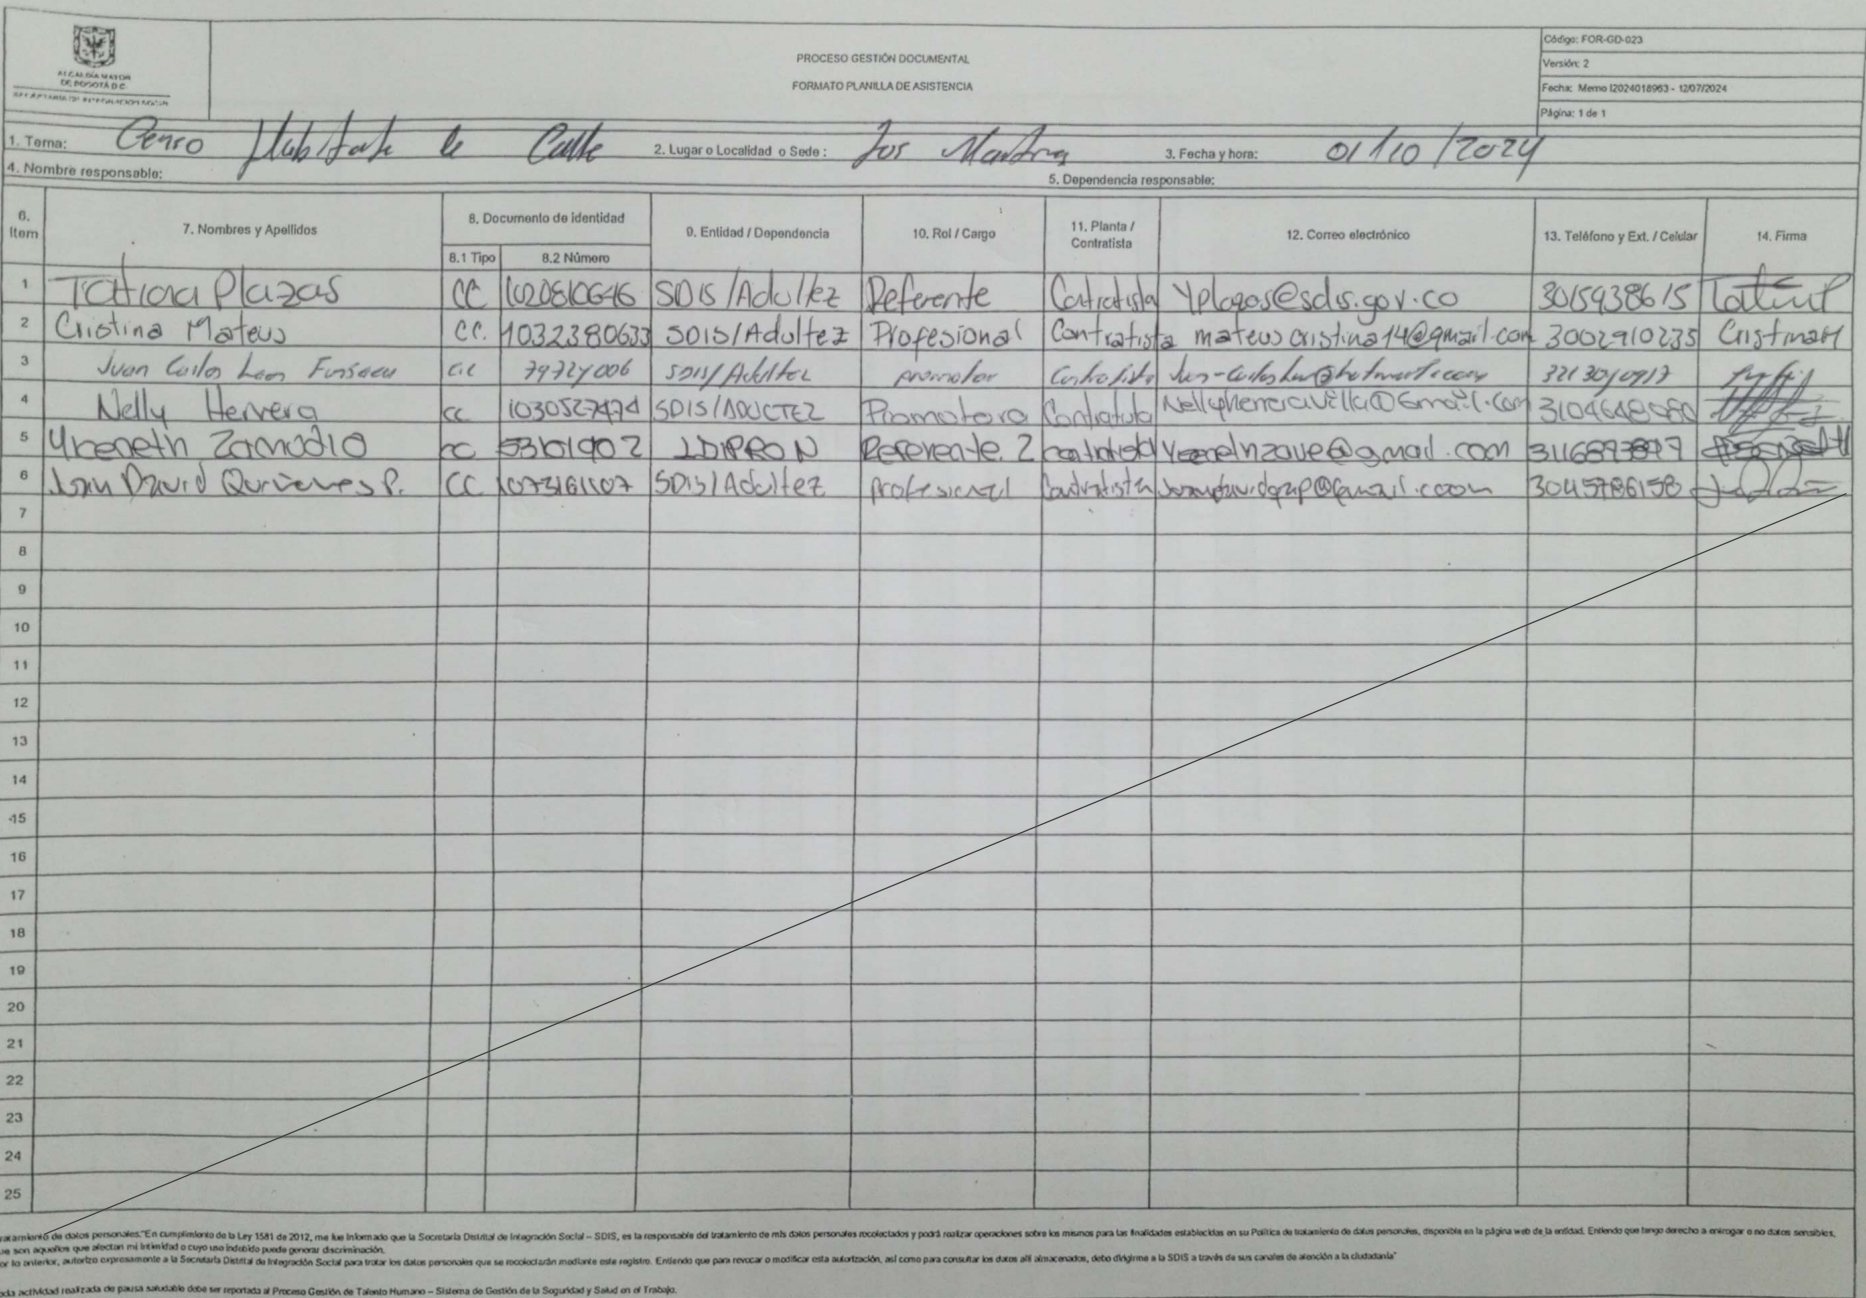 ALCALDÍA MAYOR
DE BOGOTÁ D.C.
SECRETARÍA DE INTEGRACIÓN SOCIAL
PROCESO GESTIÓN DOCUMENTAL
FORMATO PLANILLA DE ASISTENCIA
Código: FOR-GD-023
Versión: 2
Fecha: Memo I2024018963 - 12/07/2024
Página: 1 de 1
1. Tema: Censo Habitante de Calle 2. Lugar o Localidad o Sede: Los 3. Fecha y hora: 01/10/2024
4. Nombre responsable: 5. Dependencia responsable:
6. Item 7. Nombres y Apellidos 8. Documento de identidad 9. Entidad / Dependencia 10. Rol / Cargo 11. Planta / Contratista 12. Correo electrónico 13. Teléfono y Ext. / Celular 14. Firma
8.1 Tipo 8.2 Número
1 Tatiana Plazas CC SDIS/Adultez Referente Contratista 3015938615
2 Cristina Mateus CC. 1032380633 SDIS/Adultez Profesional Contratista mateus.cristina14@gmail.com 3002910235 CristinaM
3 Juan Carlos Leon Fonseca CC SDIS/Adultez promotor Contratista
4 Nelly Herrera CC SDIS/ADULTEZ Promotora Contratista
5 Zamudio CC 53101902 IDIPRON Referente. 2 contratista
6 David P. CC 1073161107 SDIS/Adultez profesional Contratista 3045786158
7
8
9
10
11
12
13
14
15
16
17
18
19
20
21
22
23
24
25
tratamiento de datos personales:"En cumplimiento de la Ley 1581 de 2012, me fue informado que la Secretaría Distrital de Integración Social – SDIS, es la responsable del tratamiento de mis datos personales recolectados y podrá realizar operaciones sobre los mismos para las finalidades establecidas en su Política de tratamiento de datos personales, disponible en la página web de la entidad. Entiendo que tengo derecho a entregar o no datos sensibles,
que son aquellos que afectan mi intimidad o cuyo uso indebido puede generar discriminación.
or lo anterior, autorizo expresamente a la Secretaría Distrital de Integración Social para tratar los datos personales que se recolectarán mediante este registro. Entiendo que para revocar o modificar esta autorización, así como para consultar los datos allí almacenados, debo dirigirme a la SDIS a través de sus canales de atención a la ciudadanía"
oda actividad realizada de pausa saludable debe ser reportada al Proceso Gestión de Talento Humano – Sistema de Gestión de la Seguridad y Salud en el Trabajo.